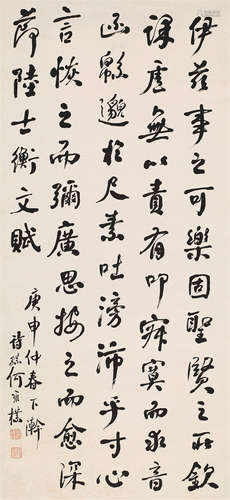 伊茲事之可樂固聖賢之所欽
課虛無以責有叩寂寞而求音
函緜邈於尺素吐滂沛乎寸心
言恢之而彌廣思按之而愈深
節陸士衡文賦
庚申仲春下澣
詩孫何維樸